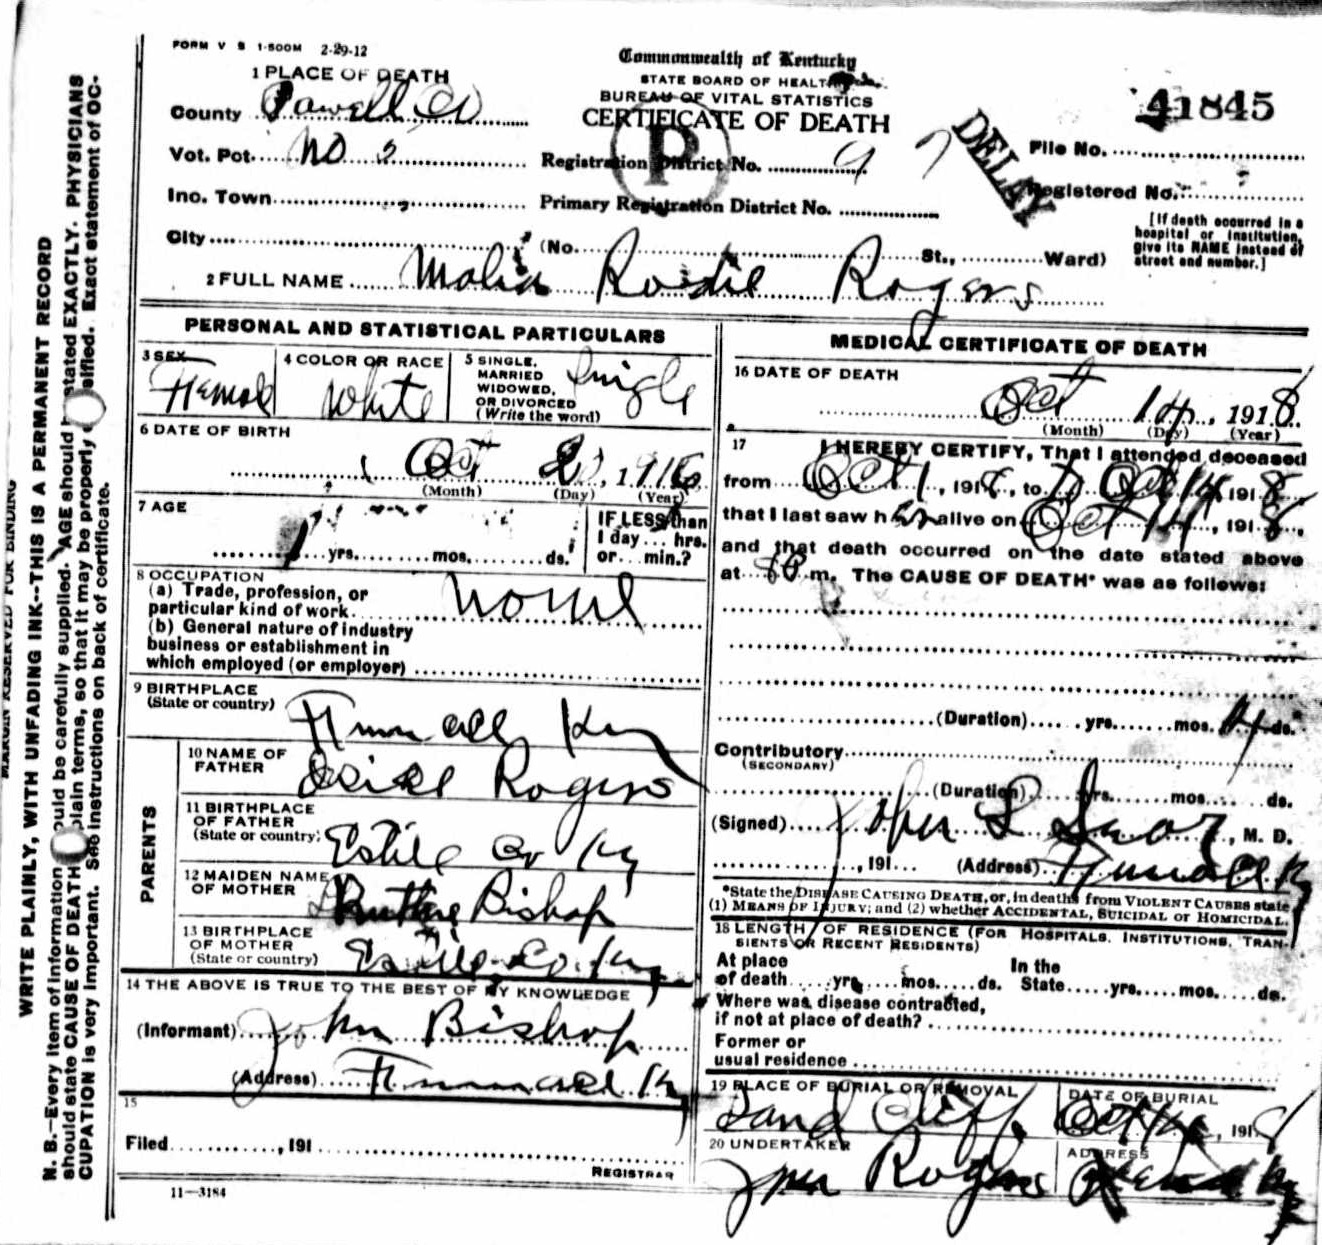 FORM V S 1-500M 2-29-12
Commonwealth of Kentucky
STATE BOARD OF HEALTH
BUREAU OF VITAL STATISTICS
CERTIFICATE OF DEATH
41845
DELAY
P
1 PLACE OF DEATH
County Powell Co
Vot. Pot. No 2
Inc. Town
City
Registration District No. 97
Primary Registration District No.
File No.
Registered No.
(No. St., Ward)
[If death occurred in a hospital or institution, give its NAME instead of street and number.]
2 FULL NAME Rodie Rogers
PERSONAL AND STATISTICAL PARTICULARS
3 SEX
Female
4 COLOR OR RACE
White
5 SINGLE, MARRIED WIDOWED, OR DIVORCED (Write the word)
Single
6 DATE OF BIRTH
Oct 2, 1916
(Month) (Day) (Year)
7 AGE
1 yrs. mos. ds.
IF LESS than 1 day hrs. or min.?
8 OCCUPATION
(a) Trade, profession, or particular kind of work
(b) General nature of industry business or establishment in which employed (or employer)
9 BIRTHPLACE
(State or country)
Ky
PARENTS
10 NAME OF FATHER
Rogers
11 BIRTHPLACE OF FATHER
(State or country)
Estill Co Ky
12 MAIDEN NAME OF MOTHER
Bishop
13 BIRTHPLACE OF MOTHER
(State or country)
Estill Co. Ky
14 THE ABOVE IS TRUE TO THE BEST OF MY KNOWLEDGE
(Informant) John Bishop
(Address) Ky
15
Filed , 191
REGISTRAR
11—3184
MEDICAL CERTIFICATE OF DEATH
16 DATE OF DEATH
Oct 14, 1918
(Month) (Day) (Year)
17
I HEREBY CERTIFY, That I attended deceased
from Oct 1, 1918, to Oct 14 1918
that I last saw her alive on Oct 14, 1918,
and that death occurred on the date stated above
at 8 P m. The CAUSE OF DEATH* was as follows:
(Duration) yrs. mos. 14 ds.
Contributory
(SECONDARY)
(Duration) yrs. mos. ds.
(Signed) John L , M. D.
, 191 (Address) Ky
*State the DISEASE CAUSING DEATH, or, in deaths from VIOLENT CAUSES state
(1) MEANS OF INJURY; and (2) whether ACCIDENTAL, SUICIDAL or HOMICIDAL.
18 LENGTH OF RESIDENCE (FOR HOSPITALS, INSTITUTIONS, TRAN-
SIENTS OR RECENT RESIDENTS)
At place of death yrs. mos. ds. In the State yrs. mos. ds.
Where was disease contracted,
if not at place of death?
Former or
usual residence
19 PLACE OF BURIAL OR REMOVAL
Sand Cliff
DATE OF BURIAL
Oct , 1918
20 UNDERTAKER
Rogers
ADDRESS
Ky
MARGIN RESERVED FOR BINDING
WRITE PLAINLY, WITH UNFADING INK--THIS IS A PERMANENT RECORD
N. B.—Every item of information should be carefully supplied. AGE should be stated EXACTLY. PHYSICIANS
should state CAUSE OF DEATH in plain terms, so that it may be properly classified. Exact statement of OC-
CUPATION is very important. See instructions on back of certificate.